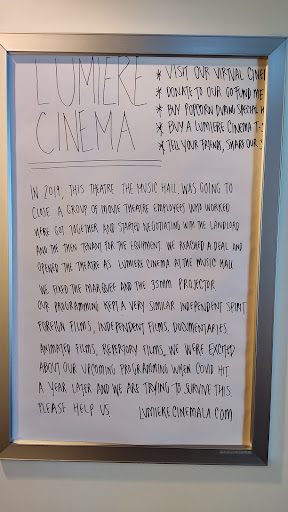 LUMIERE
CINEMA
* VISIT OUR VIRTUAL CINE
* DONATE TO OUR GO FUND ME
* BUY POPCORN DURING SPECIAL
* BUY A LUMIERE CINEMA T-
* TELL YOUR FRIENDS, SHARE OUR
IN 2019, THIS THEATRE THE MUSIC HALL, WAS GOING TO
CLOSE. A GROUP OF MOVIE THEATRE EMPLOYEES WHO WORKED
HERE GOT TOGETHER AND STARTED NEGOTIATING WITH THE LANDLORD
AND THE THEN TENANT FOR THE EQUIPMENT. WE REACHED A DEAL AND
OPENED THE THEATRE AS LUMIERE CINEMA AT THE MUSIC HALL
WE FIXED THE MARQUEE AND THE 35MM PROJECTOR
OUR PROGRAMMING KEPT A VERY SIMILAR INDEPENDENT SPIRIT.
FOREIGN FILMS, INDEPENDENT FILMS, DOCUMENTARIES,
ANIMATED FILMS, REPERTORY FILMS, WE WERE EXCITED
ABOUT OUR UPCOMING PROGRAMMING WHEN COVID HIT
A YEAR LATER AND WE ARE TRYING TO SURVIVE THIS.
PLEASE HELP US. LUMIERECINEMALA.COM